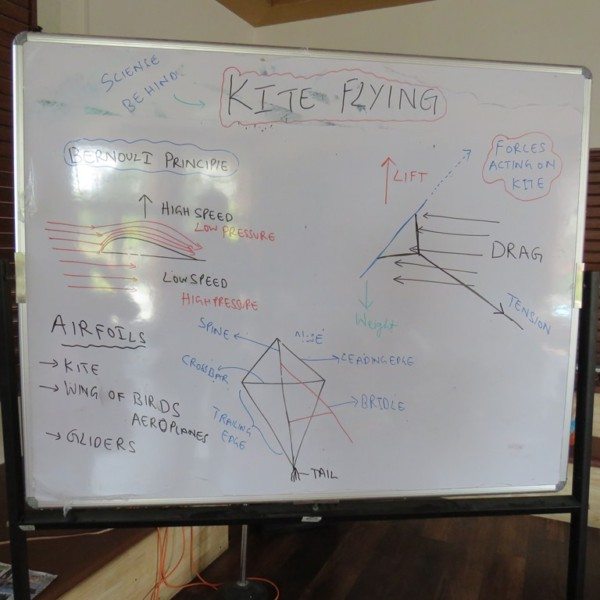 SCIENCE
BEHIND
KITE FLYING
BERNOULI PRINCIPLE
HIGH SPEED
LOW PRESSURE
LOW SPEED
HIGH PRESSURE
FORCES
ACTING ON
KITE
LIFT
DRAG
TENSION
Weight
AIRFOILS
→ KITE
→ WING OF BIRDS
AEROPLANES
→ GLIDERS
SPINE
NOSE
CROSSBAR
LEADING EDGE
TRAILING
EDGE
BRIDLE
TAIL